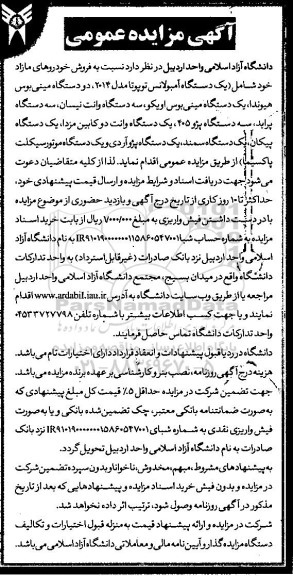 آگهی مزایده عمومی
دانشگاه آزاد اسلامی واحد اردبیل در نظر دارد نسبت به فروش خودروهای مازاد
خود شامل (یک دستگاه آمبولانس تویوتا مدل ۲۰۱۴، دو دستگاه مینی بوس
هیوندا، یک دستگاه مینی بوس اویکو، سه دستگاه وانت نیسان، سه دستگاه
پراید، سه دستگاه پژو ۴۰۵، یک دستگاه وانت دو کابین مزدا، یک دستگاه
پیکان، یک دستگاه سمند، یک دستگاه پژو آردی و یک دستگاه موتورسیکلت
پاکشما) از طریق مزایده عمومی اقدام نماید. لذا از کلیه متقاضیان دعوت
می شود جهت دریافت اسناد و شرایط مزایده و ارسال قیمت پیشنهادی خود،
حداکثر تا ۱۰ روز کاری از تاریخ درج آگهی و بازدید حضوری از موضوع مزایده
با در دست داشتن فیش واریزی به مبلغ ۷۰۰۰/۰۰۰ ریال از بابت خرید اسناد
مزایده به شماره حساب شبا به نام دانشگاه آزاد
اسلامی واحد اردبیل نزد بانک صادرات (غیرقابل استرداد) به واحد تدارکات
دانشگاه واقع در میدان بسیج، مجتمع دانشگاه آزاد اسلامی واحد اردبیل
مراجعه یا از طریق وب سایت دانشگاه به آدرس www.ardabil.iau.ir اقدام
نمایند و یا جهت کسب اطلاعات بیشتر با شماره تلفن ۰۴۵۳۳۷۲۷۷۹۸
واحد تدارکات دانشگاه تماس حاصل فرمایند.
دانشگاه در رد یا قبول پیشنهادات و انعقاد قرارداد دارای اختیارات تام می باشد.
هزینه درج آگهی روزنامه، نصب بنر و کارشناسی بر عهده برنده مزایده می باشد.
جهت تضمین شرکت در مزایده حداقل ۵٪ قیمت کل مبلغ پیشنهادی که
به صورت ضمانتنامه بانکی معتبر، چک تضمین شده بانکی و یا به صورت
فیش واریزی نقدی به شماره شبای نزد بانک
صادرات به نام دانشگاه آزاد اسلامی واحد اردبیل تحویل گردد.
به پیشنهادهای مشروط، مبهم، مخدوش، ناخوانا، بدون سپرده تضمین شرکت
در مزایده و بدون فیش خرید اسناد مزایده و پیشنهادهایی که بعد از تاریخ
مذکور در آگهی روزنامه وصول شود، ترتیب اثر داده نخواهد شد.
شرکت در مزایده و ارائه پیشنهاد قیمت به منزله قبول اختیارات و تکالیف
دستگاه مزایده گذار و آیین نامه مالی و معاملاتی دانشگاه آزاد اسلامی می باشد.